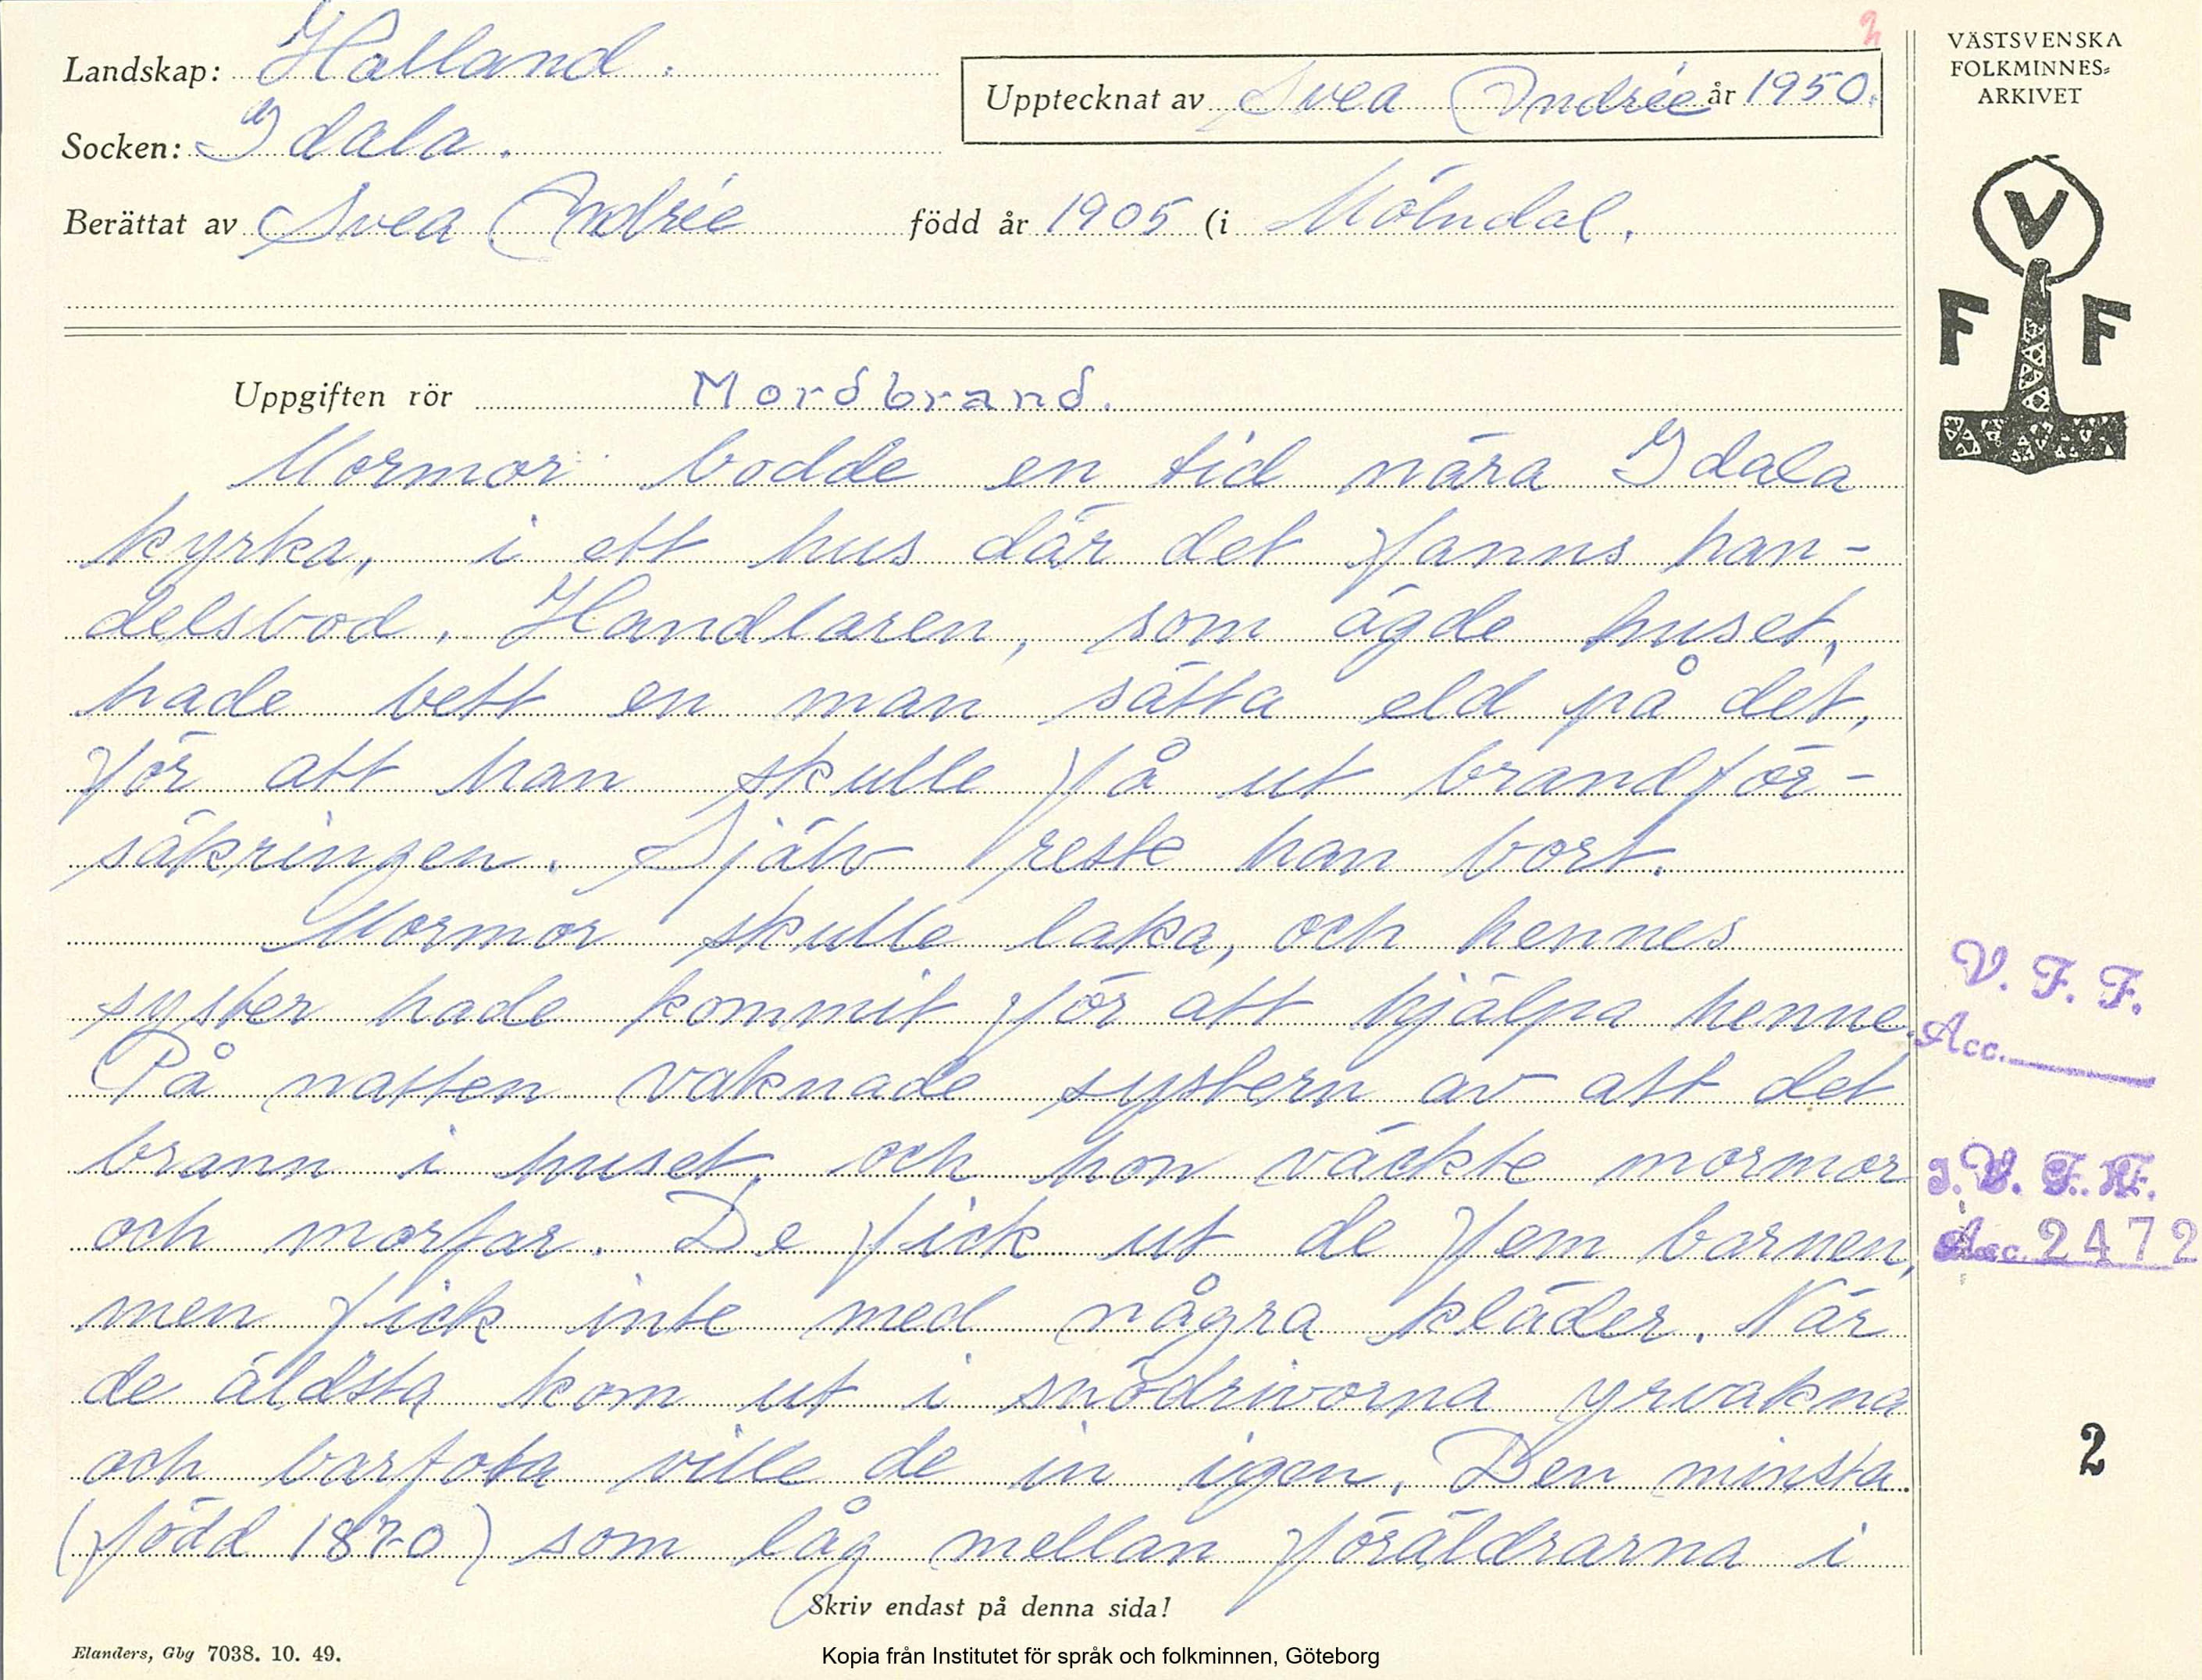 Landskap: Halland.
Socken: Idala.
Upptecknat av Svea Andrée år 1950.
Berättat av Svea Andrée född år 1905 (i Mölndal.
2
VÄSTSVENSKA
FOLKMINNES=
ARKIVET
V
F F
Uppgiften rör Mordbrand.
Mormor bodde en tid nära Idala
kyrka, i ett hus där det fanns han-
delsbod. Handlaren, som ägde huset,
hade bett en man sätta eld på det,
för att han skulle få ut brandför-
säkringen. Själv reste han bort.
Mormor skulle baka, och hennes
syster hade kommit för att hjälpa henne.
På natten vaknade systern av att det
brann i huset, och hon väckte mormor
och morfar. De fick ut de fem barnen,
men fick inte med några kläder. När
de äldsta kom ut i snödrivorna yrvakna
och barfota ville de in igen. Den minsta
(född 1870) som låg mellan föräldrarna i
V. F. F.
Acc.
I. V. F. F.
Acc. 2472
2
Skriv endast på denna sida!
Elanders, Gbg 7038. 10. 49.
Kopia från Institutet för språk och folkminnen, Göteborg